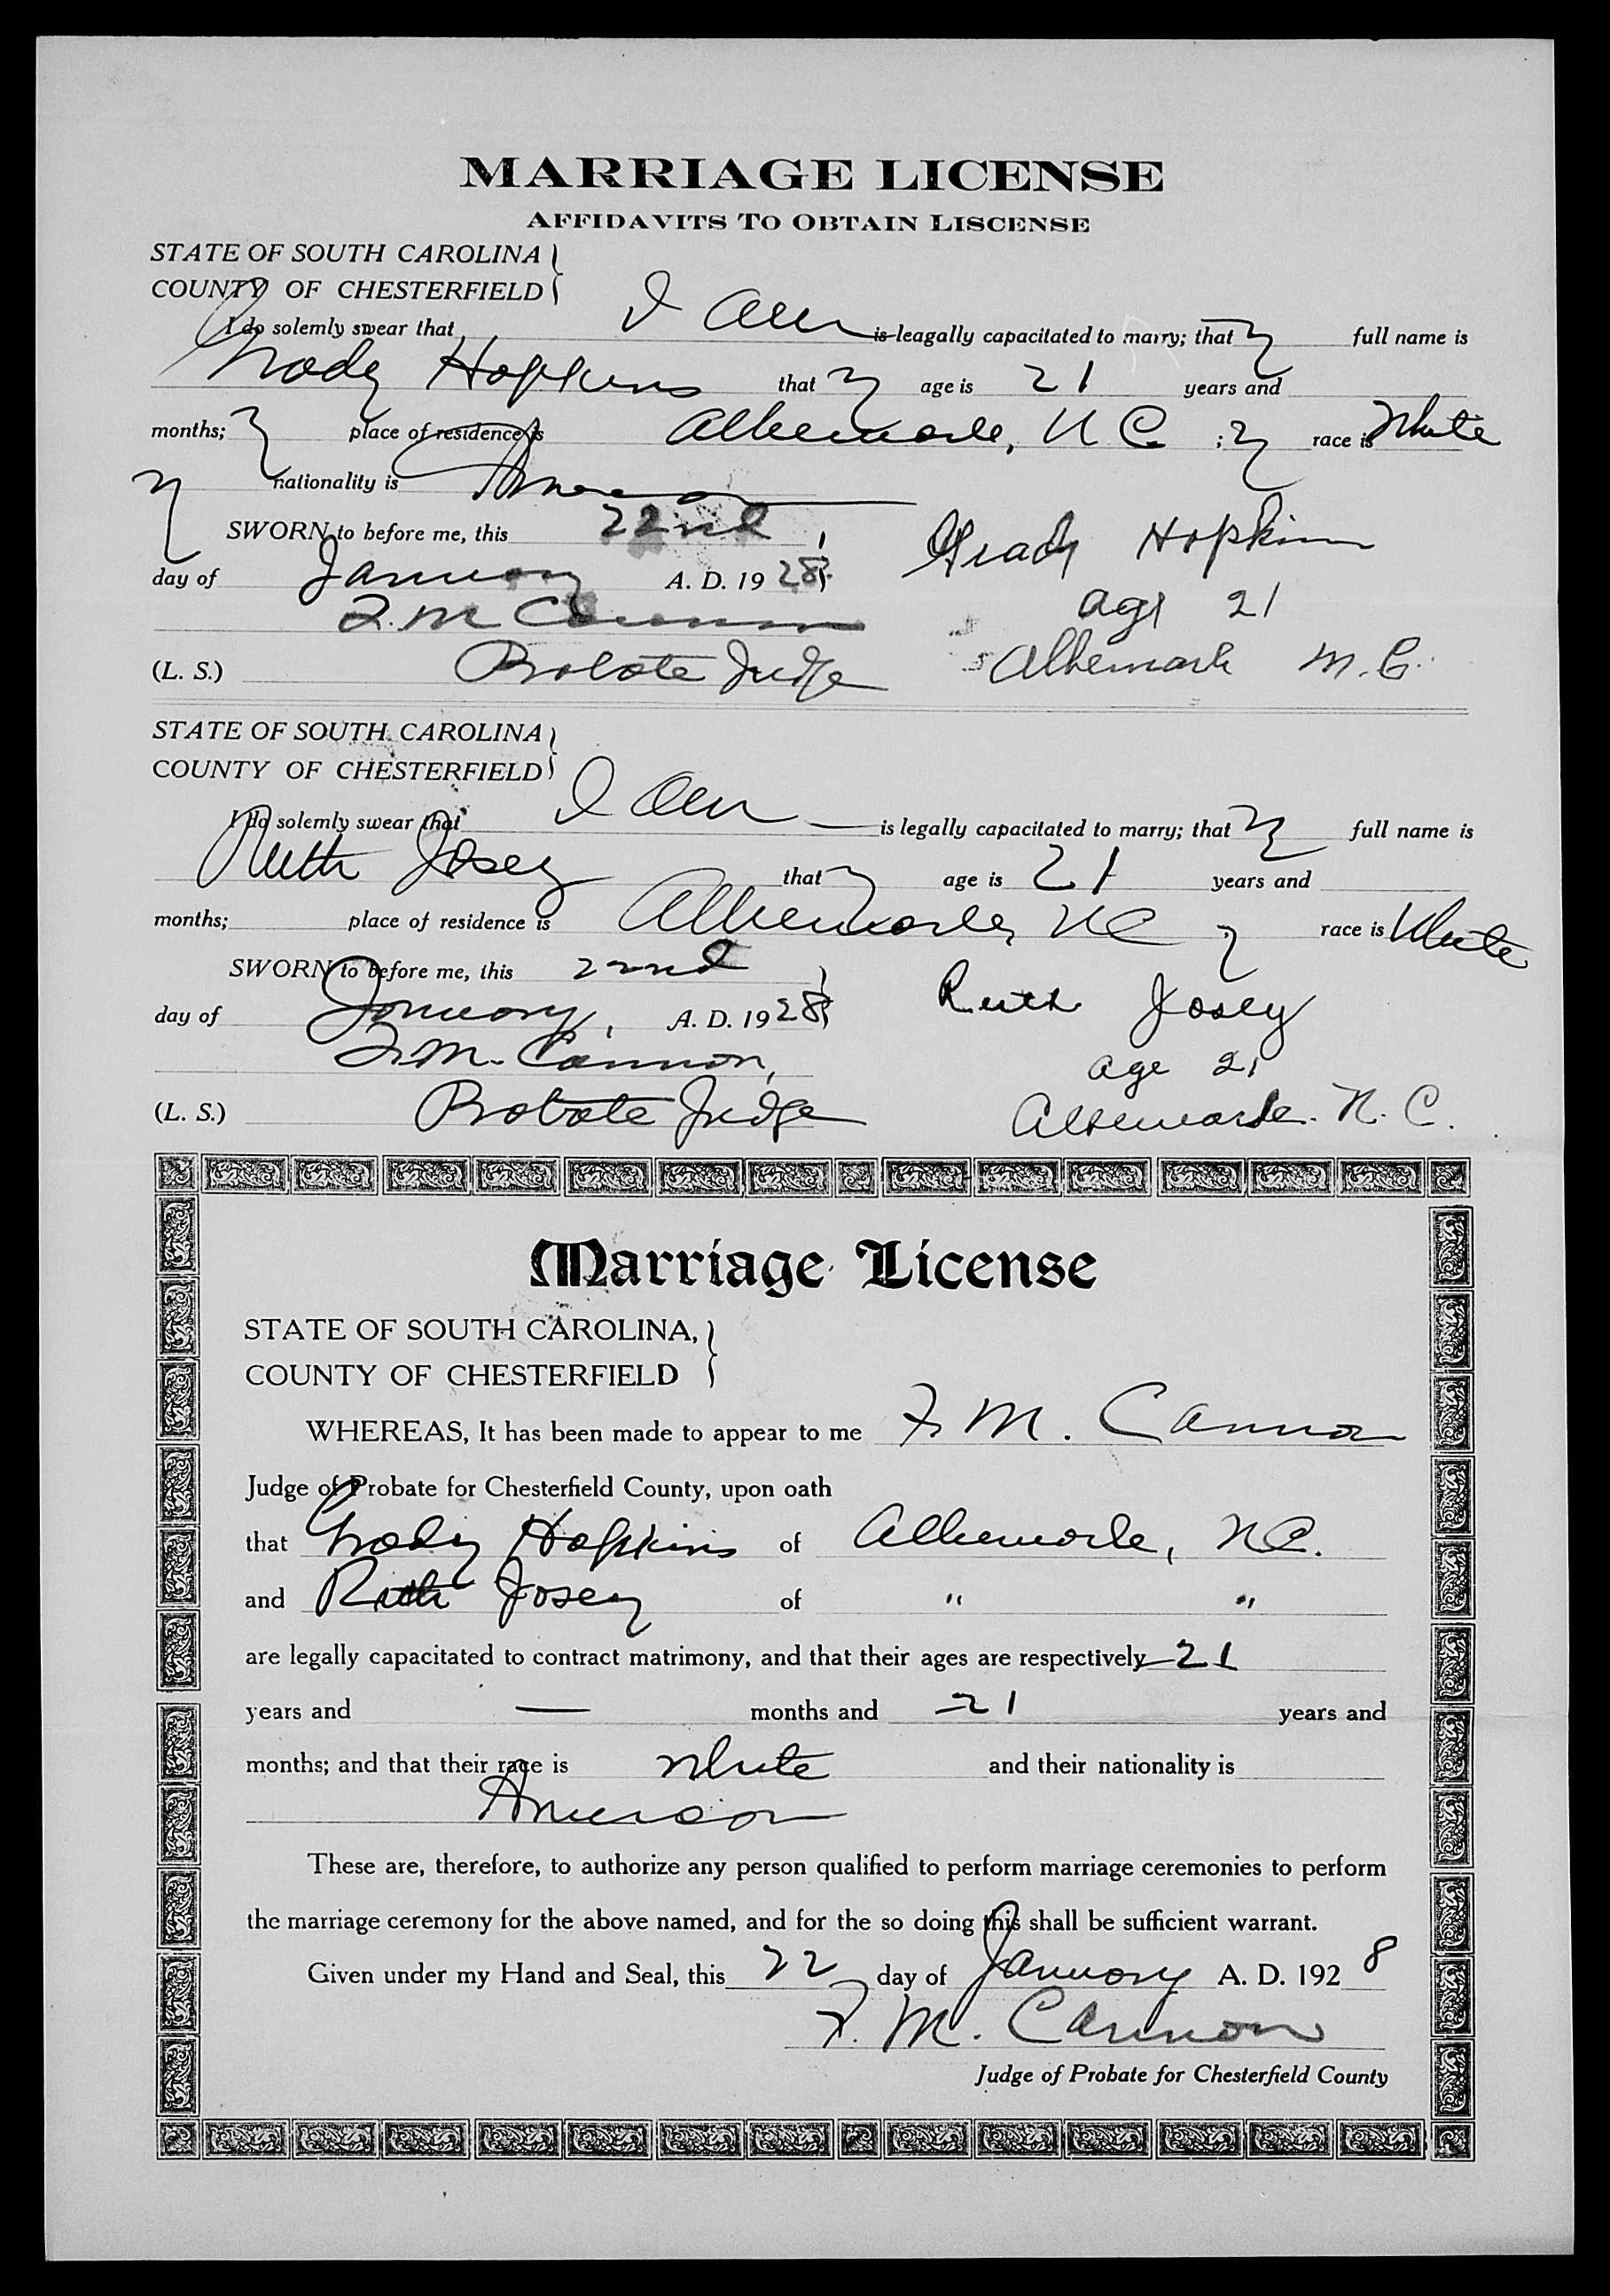 MARRIAGE LICENSE
AFFIDAVITS TO OBTAIN LISCENSE
STATE OF SOUTH CAROLINA
COUNTY OF CHESTERFIELD
I do solemly swear that I am is leagally capacitated to marry; that my full name is
Grady Hopkins that my age is 21 years and
months; my place of residence is Albemarle, N C ; my race is White
my nationality is American
SWORN to before me, this 22nd
day of January A. D. 1928. Grady Hopkins
F. M Cannon age 21
(L. S.) Probate Judge Albemarle N. C.
STATE OF SOUTH CAROLINA
COUNTY OF CHESTERFIELD
I do solemnly swear that I am is legally capacitated to marry; that my full name is
Ruth Josey that my age is 21 years and
months; place of residence is Albemarle, N C ; my race is White
SWORN to before me, this 22nd
day of January, A. D. 1928 Ruth Josey
F. M. Cannon, age 21
(L. S.) Probate Judge Albemarle. N. C.
Marriage License
STATE OF SOUTH CAROLINA,
COUNTY OF CHESTERFIELD
WHEREAS, It has been made to appear to me F. M. Cannon
Judge of Probate for Chesterfield County, upon oath
that Grady Hopkins of Albemarle, N.C.
and Ruth Josey of " "
are legally capacitated to contract matrimony, and that their ages are respectively 21
years and — months and 21 years and
months; and that their race is White and their nationality is
American
These are, therefore, to authorize any person qualified to perform marriage ceremonies to perform
the marriage ceremony for the above named, and for the so doing this shall be sufficient warrant.
Given under my Hand and Seal, this 22 day of January A. D. 1928
F. M. Cannon
Judge of Probate for Chesterfield County